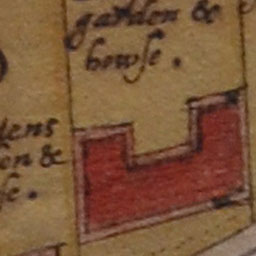 garden &
howse.
dens
en &
se.